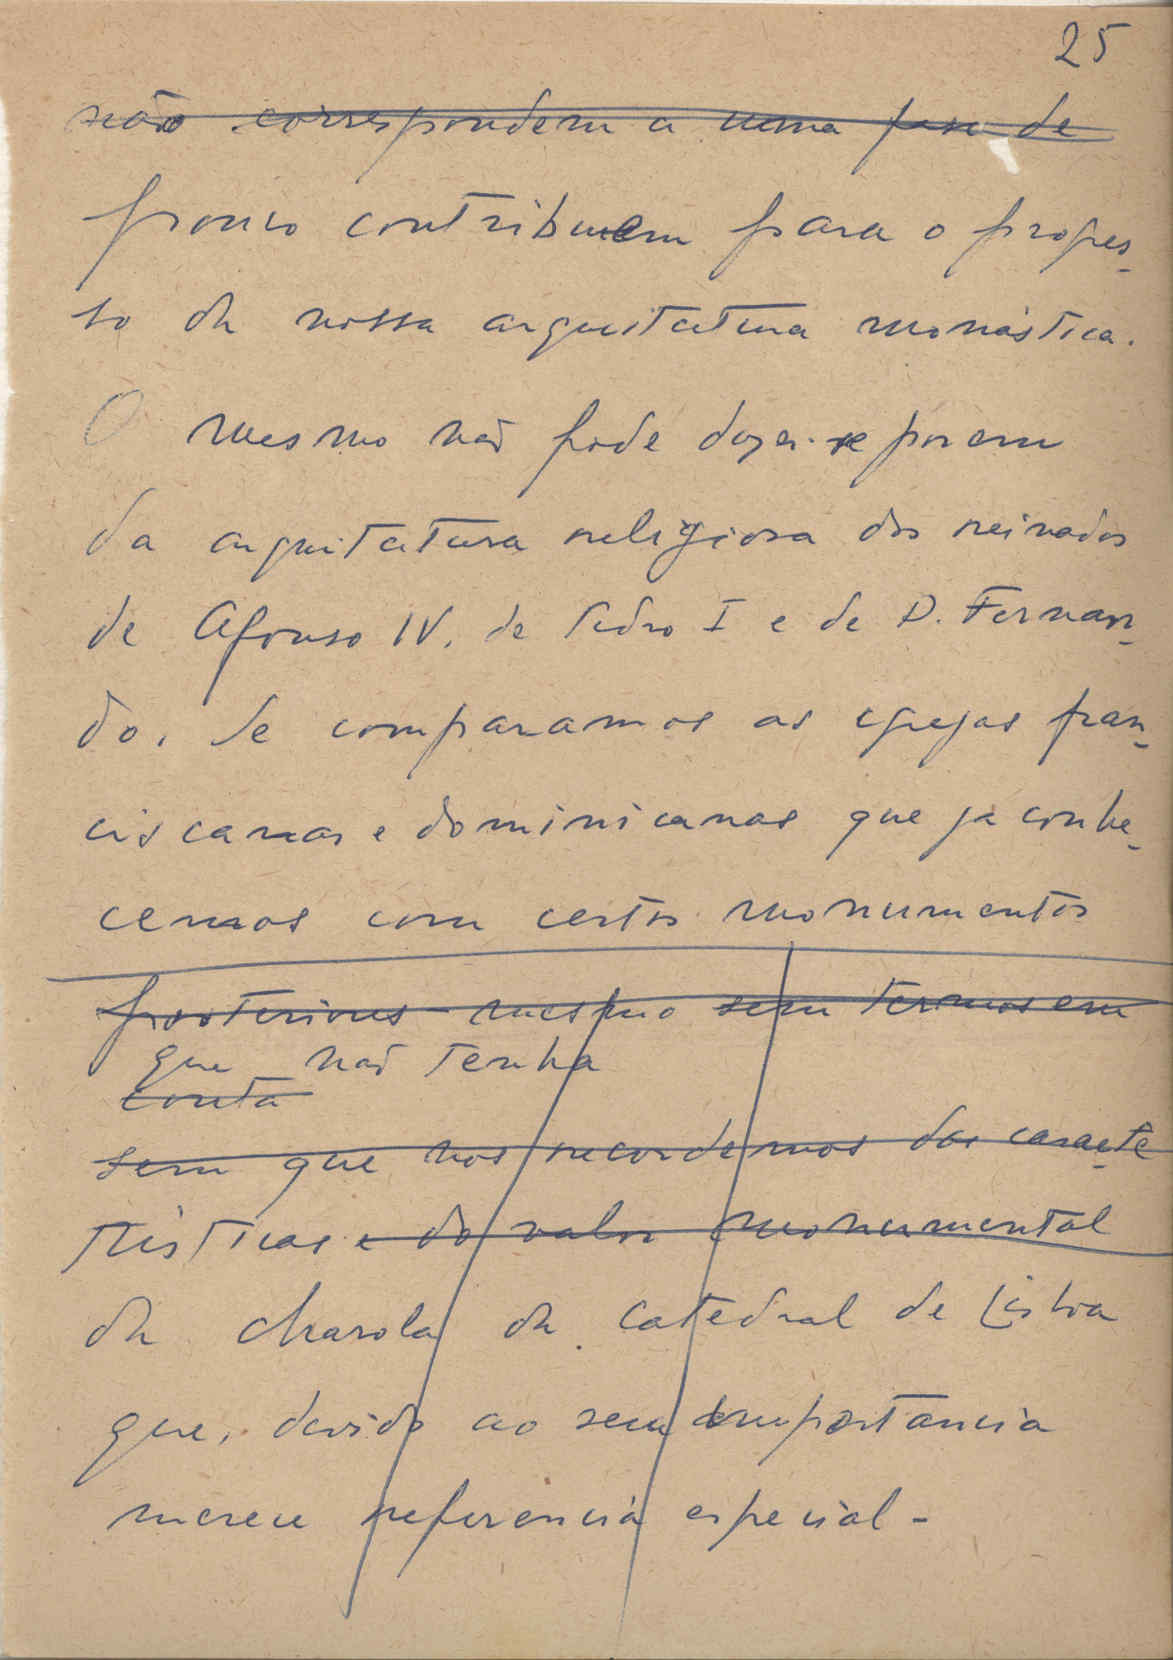 25
não correspondem a uma fase de
pouco contribuem para o progres-
so da nossa arquitectura monástica.
O mesmo não pode dizer-se porem
da arquitectura religiosa dos reinados
de Afonso IV, de Pedro I e de D. Fernan-
do. Se comparamos as egrejas fran-
ciscanas e dominicanas que ja conhe-
cemos com certos monumentos
posteriores mesmo sem termos em
que não tenha
conta
sem que nos recordemos das caracte
rísticas e do valor monumental
da charola da catedral de Lisboa
que, devido ao seu importancia
merece referencia especial -